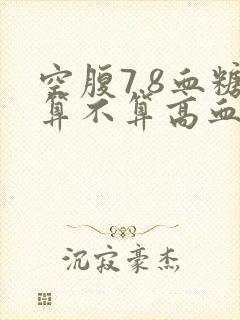 空腹7.8血糖
算不算高血
沉寂豪杰